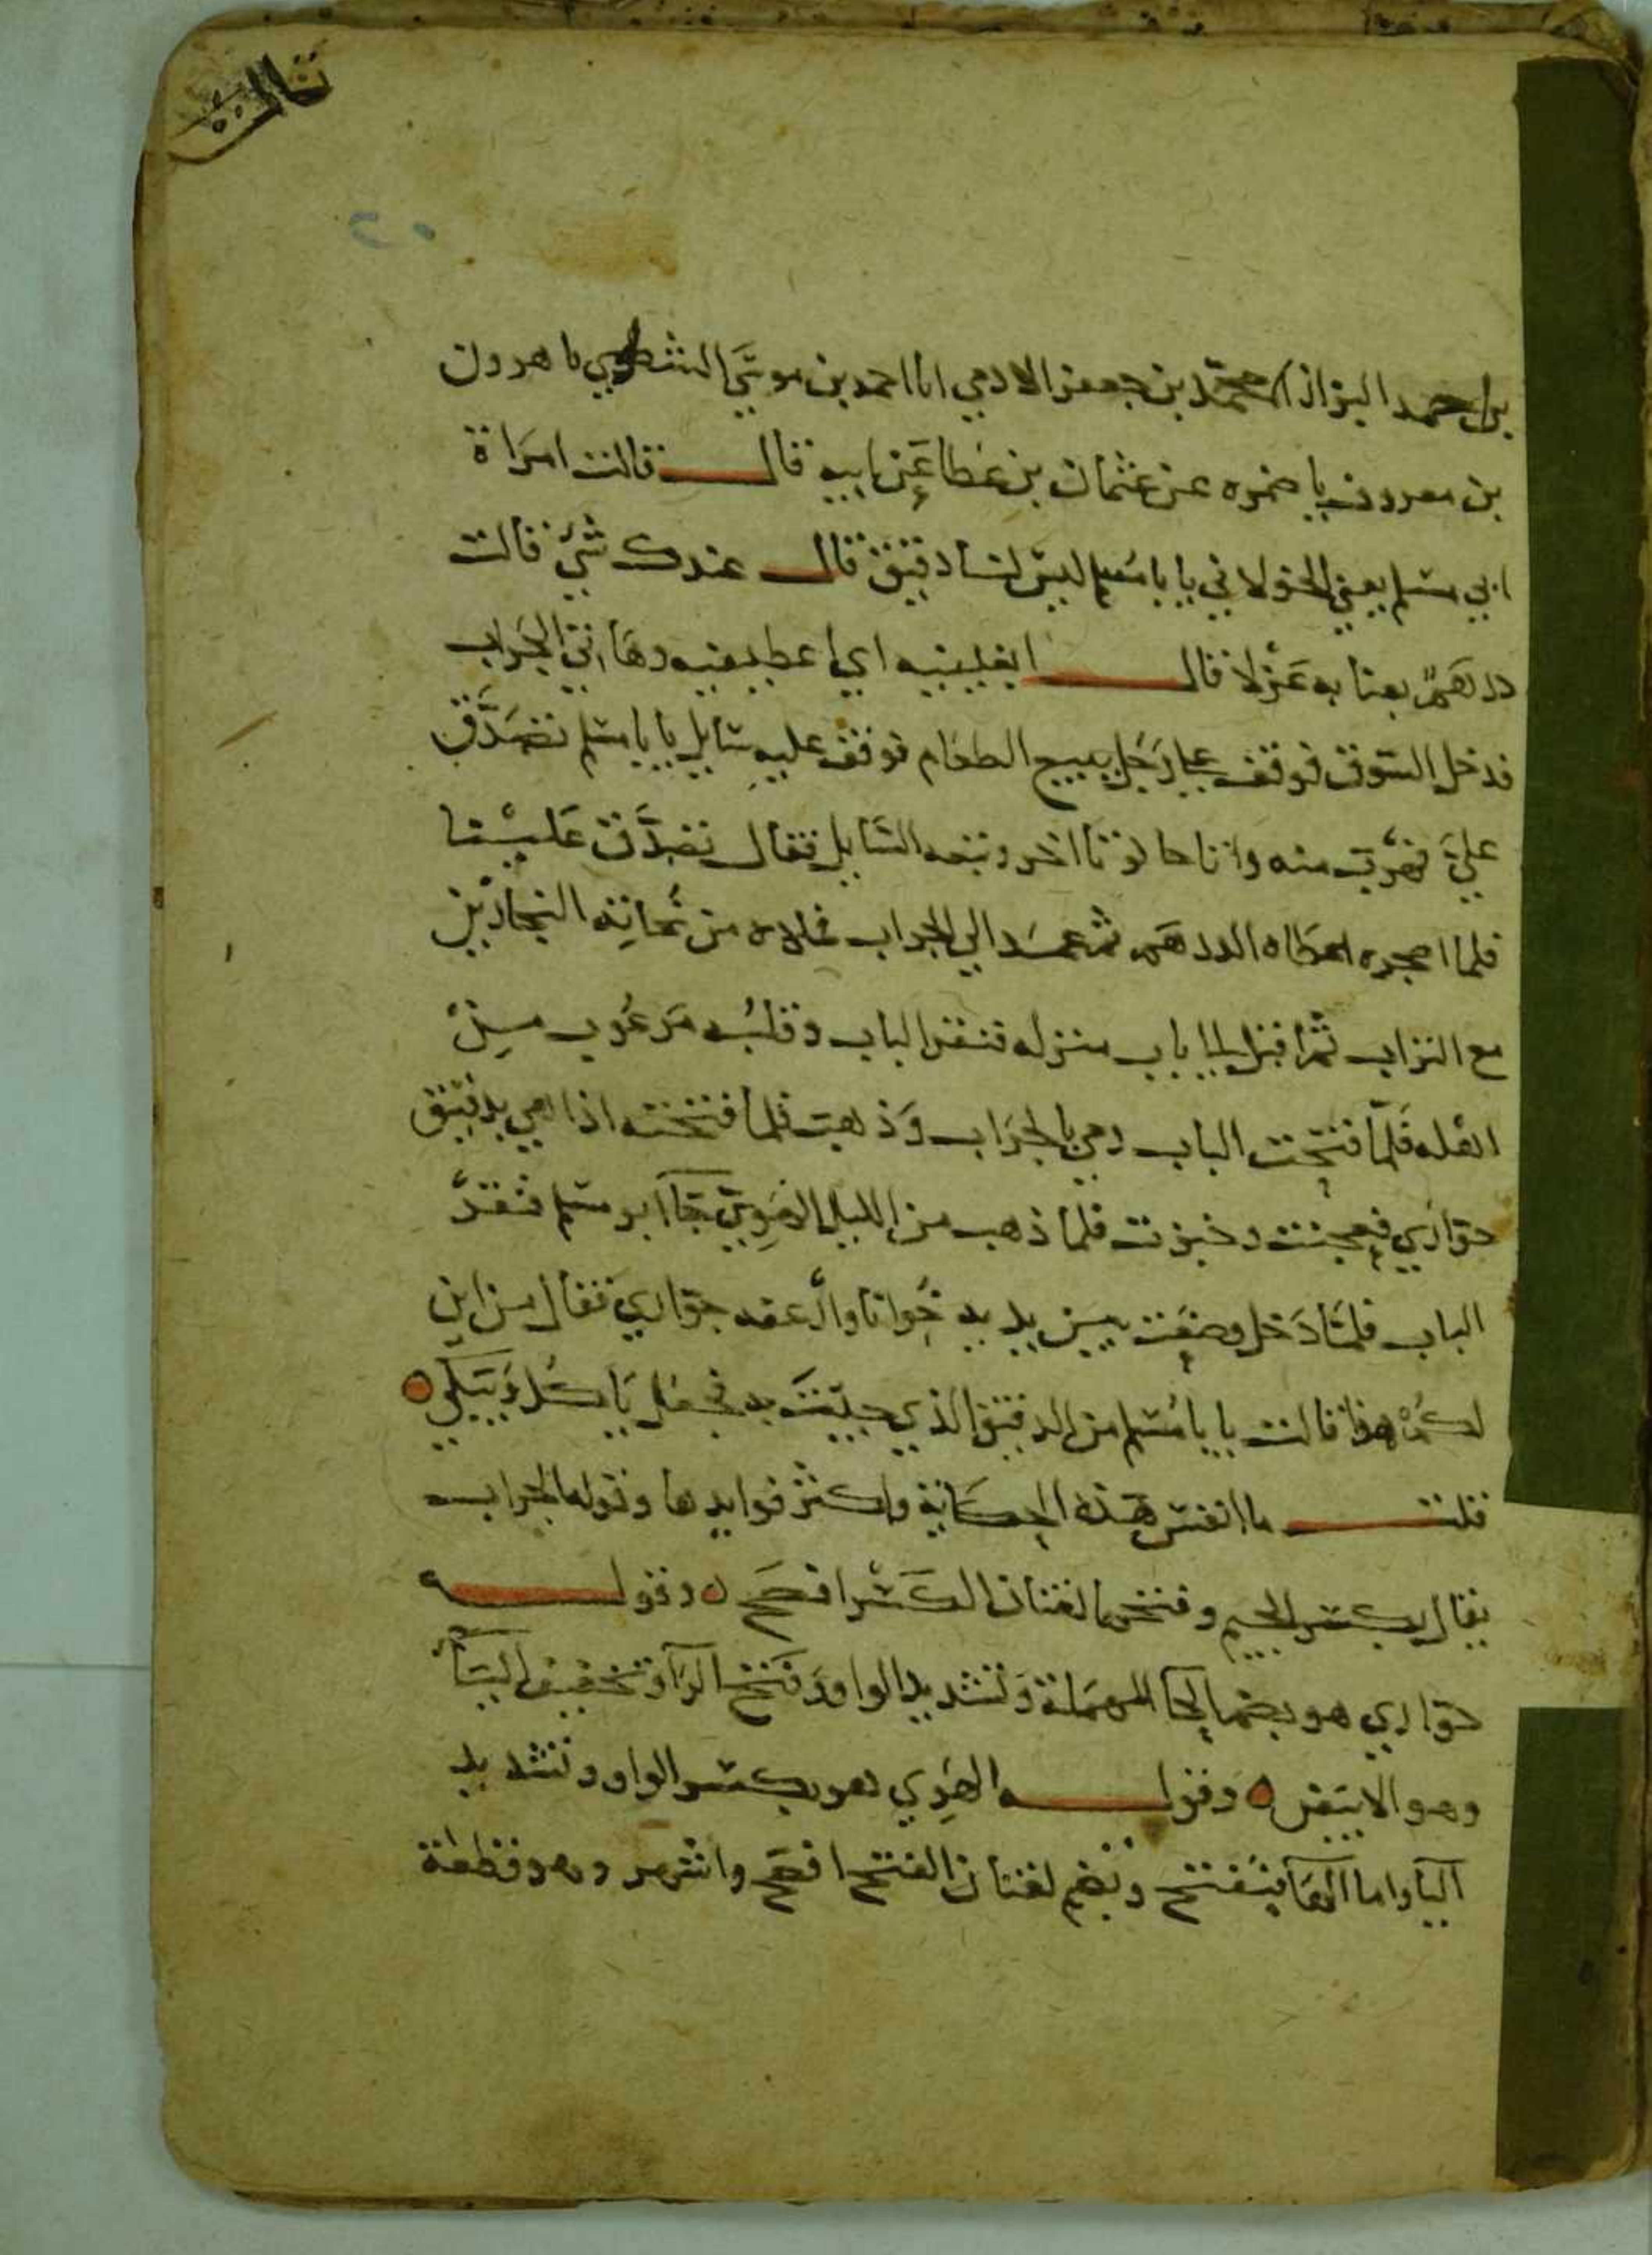 ثالثة
٢٠
بن احمد البزاز انا محمد بن جعفر الادمي انا احمد بن موسى الشطوي نا هرون
بن معروف نا ضمره عن عثمان بن عطا عن ابيه قال قالت امراة
ابي مسلم يعني الخولاني يا با مسلم ليس لنا دقيق قال عندك شي قالت
درهم بعنا به غزلا قال ابغينيه اي اعطينيه وهاتي الجراب
فدخل السوق فوقف على رجل يبيع الطعام فوقف عليه سايل يا با مسلم تصدق
علي فهرب منه واتا حانوتا اخر وتبعه السايل فقال تصدق علينا
فلما اضجره اعطاه الدرهم ثم عمد الي الجراب فملاه من نحاتة النجارين
مع التراب ثم اقبل الى باب منزله فنقر الباب وقلبه مرعوب من
اهله فلما فتحت الباب رمي بالجراب وذهب فلما فتحته اذا هي بدقيق
حوارى فعجنت وخبزت فلما ذهب من الليل الهوي جآ ابو مسلم فنقر
الباب فلما دخل وضعت بين يديه خوانا وارغفه حواري فقال من اين
لكم هذا قالت يا با مسلم من الدقيق الذي جيت به فجعل ياكل ويبكي
قلت ما انفس هذه الحكاية واكثر فوايدها وقوله الجراب
يقال بكسر الجيم وفتحها لغتان الكسر افصح وقوله
حوارى هو بضم الحا المهملة وتشديد الواو وفتح الرآ وتخفيف اليآ
وهو الابيض وقوله الهوي هو بكسر الواو وتشديد
اليآ واما الهآ فتفتح وتضم لغتان الفتح افصح واشهر وهو قطعة